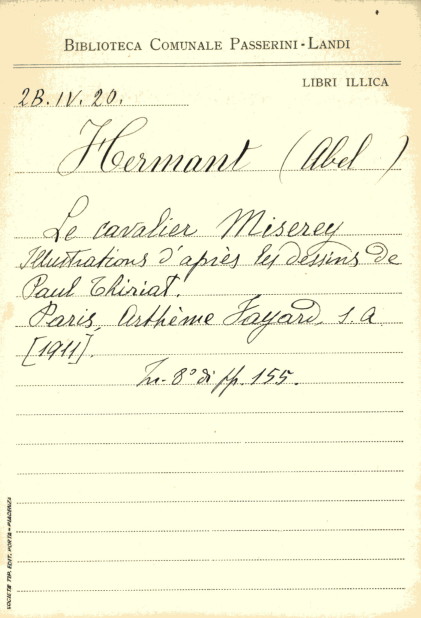 BIBLIOTECA COMUNALE PASSERINI-LANDI
LIBRI ILLICA
2B.IV.20.
Hermant (Abel)
Le cavalier Miserey
Illustrations d'après les dessins de
Paul Thiriat.
Paris, Arthème Fayard, s.a.
[1911].
In-8° di pp. 155.
SOCIETÀ TIP. EDIT. PORTA - PIACENZA